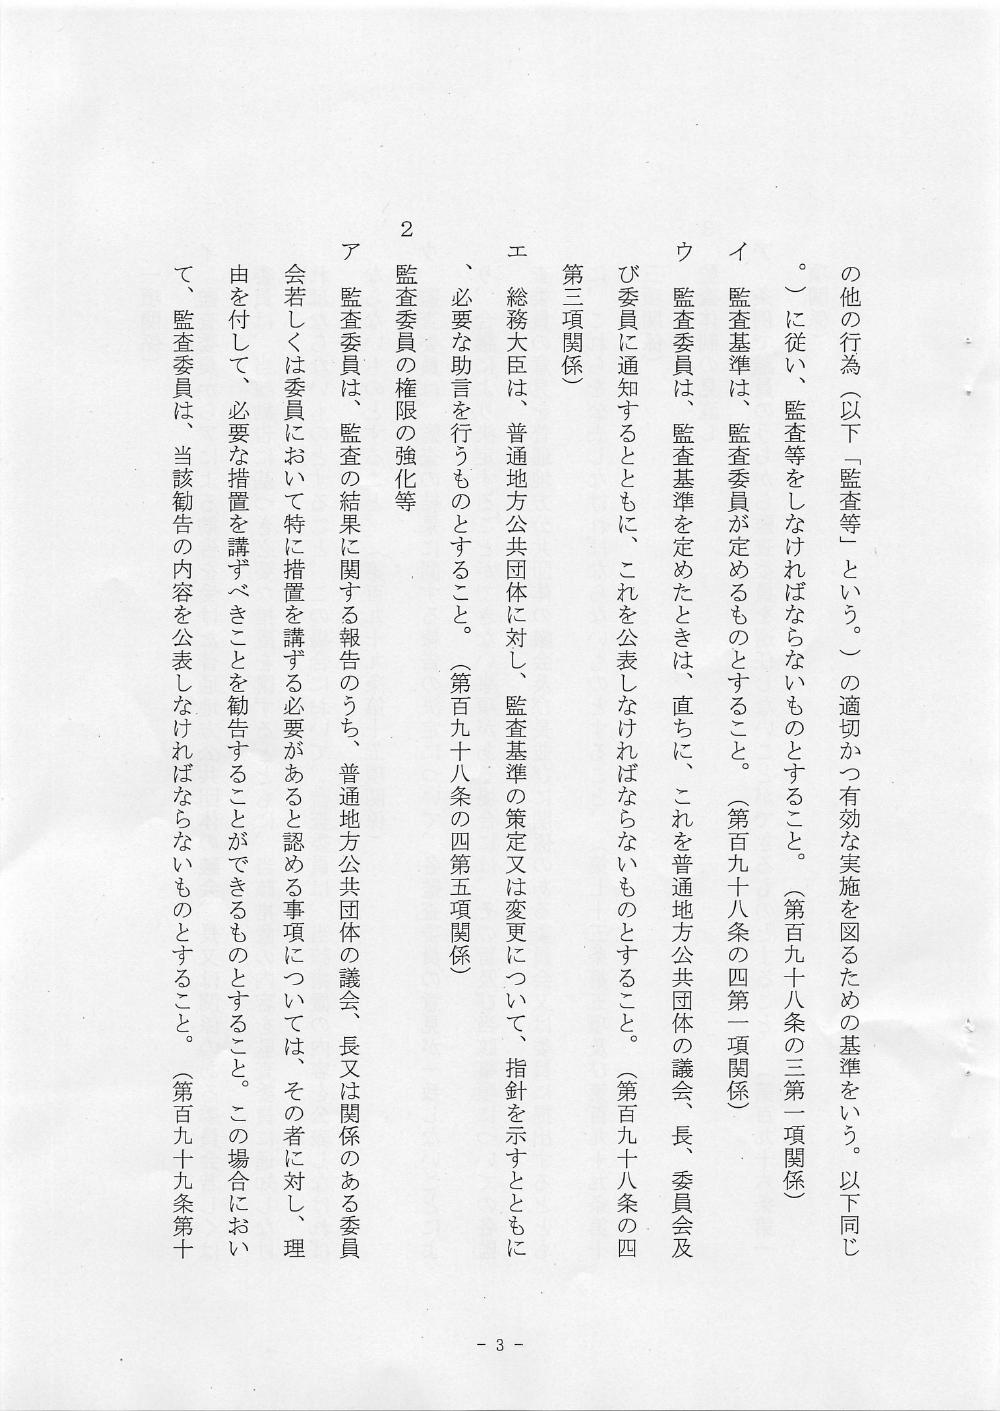 の他の行為（以下「監査等」という。）の適切かつ有効な実施を図るための基準をいう。以下同じ
。）に従い、監査等をしなければならないものとすること。（第百九十八条の三第一項関係）
イ　監査基準は、監査委員が定めるものとすること。（第百九十八条の四第一項関係）
ウ　監査委員は、監査基準を定めたときは、直ちに、これを普通地方公共団体の議会、長、委員会及
び委員に通知するとともに、これを公表しなければならないものとすること。（第百九十八条の四
第三項関係）
エ　総務大臣は、普通地方公共団体に対し、監査基準の策定又は変更について、指針を示すとともに
、必要な助言を行うものとすること。（第百九十八条の四第五項関係）
２　監査委員の権限の強化等
ア　監査委員は、監査の結果に関する報告のうち、普通地方公共団体の議会、長又は関係のある委員
会若しくは委員において特に措置を講ずる必要があると認める事項については、その者に対し、理
由を付して、必要な措置を講ずべきことを勧告することができるものとすること。この場合におい
て、監査委員は、当該勧告の内容を公表しなければならないものとすること。（第百九十九条第十
- 3 -